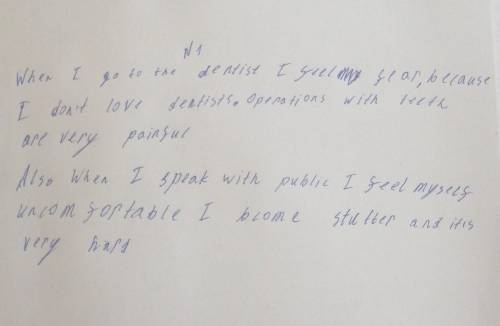 N1
When I go to the dentist I feel my fear, because
I don't love dentists. Operations with teeth
are very painful
Also when I speak with public I feel myself
uncomfortable I bcome stutter and it is
very hard